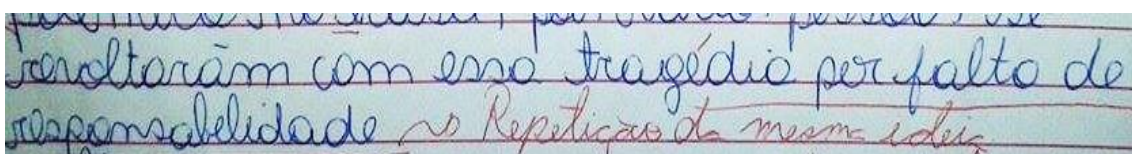 revoltarãm com essa tragédia por falta de
responsabelidade ~> Repetição da mesma ideia